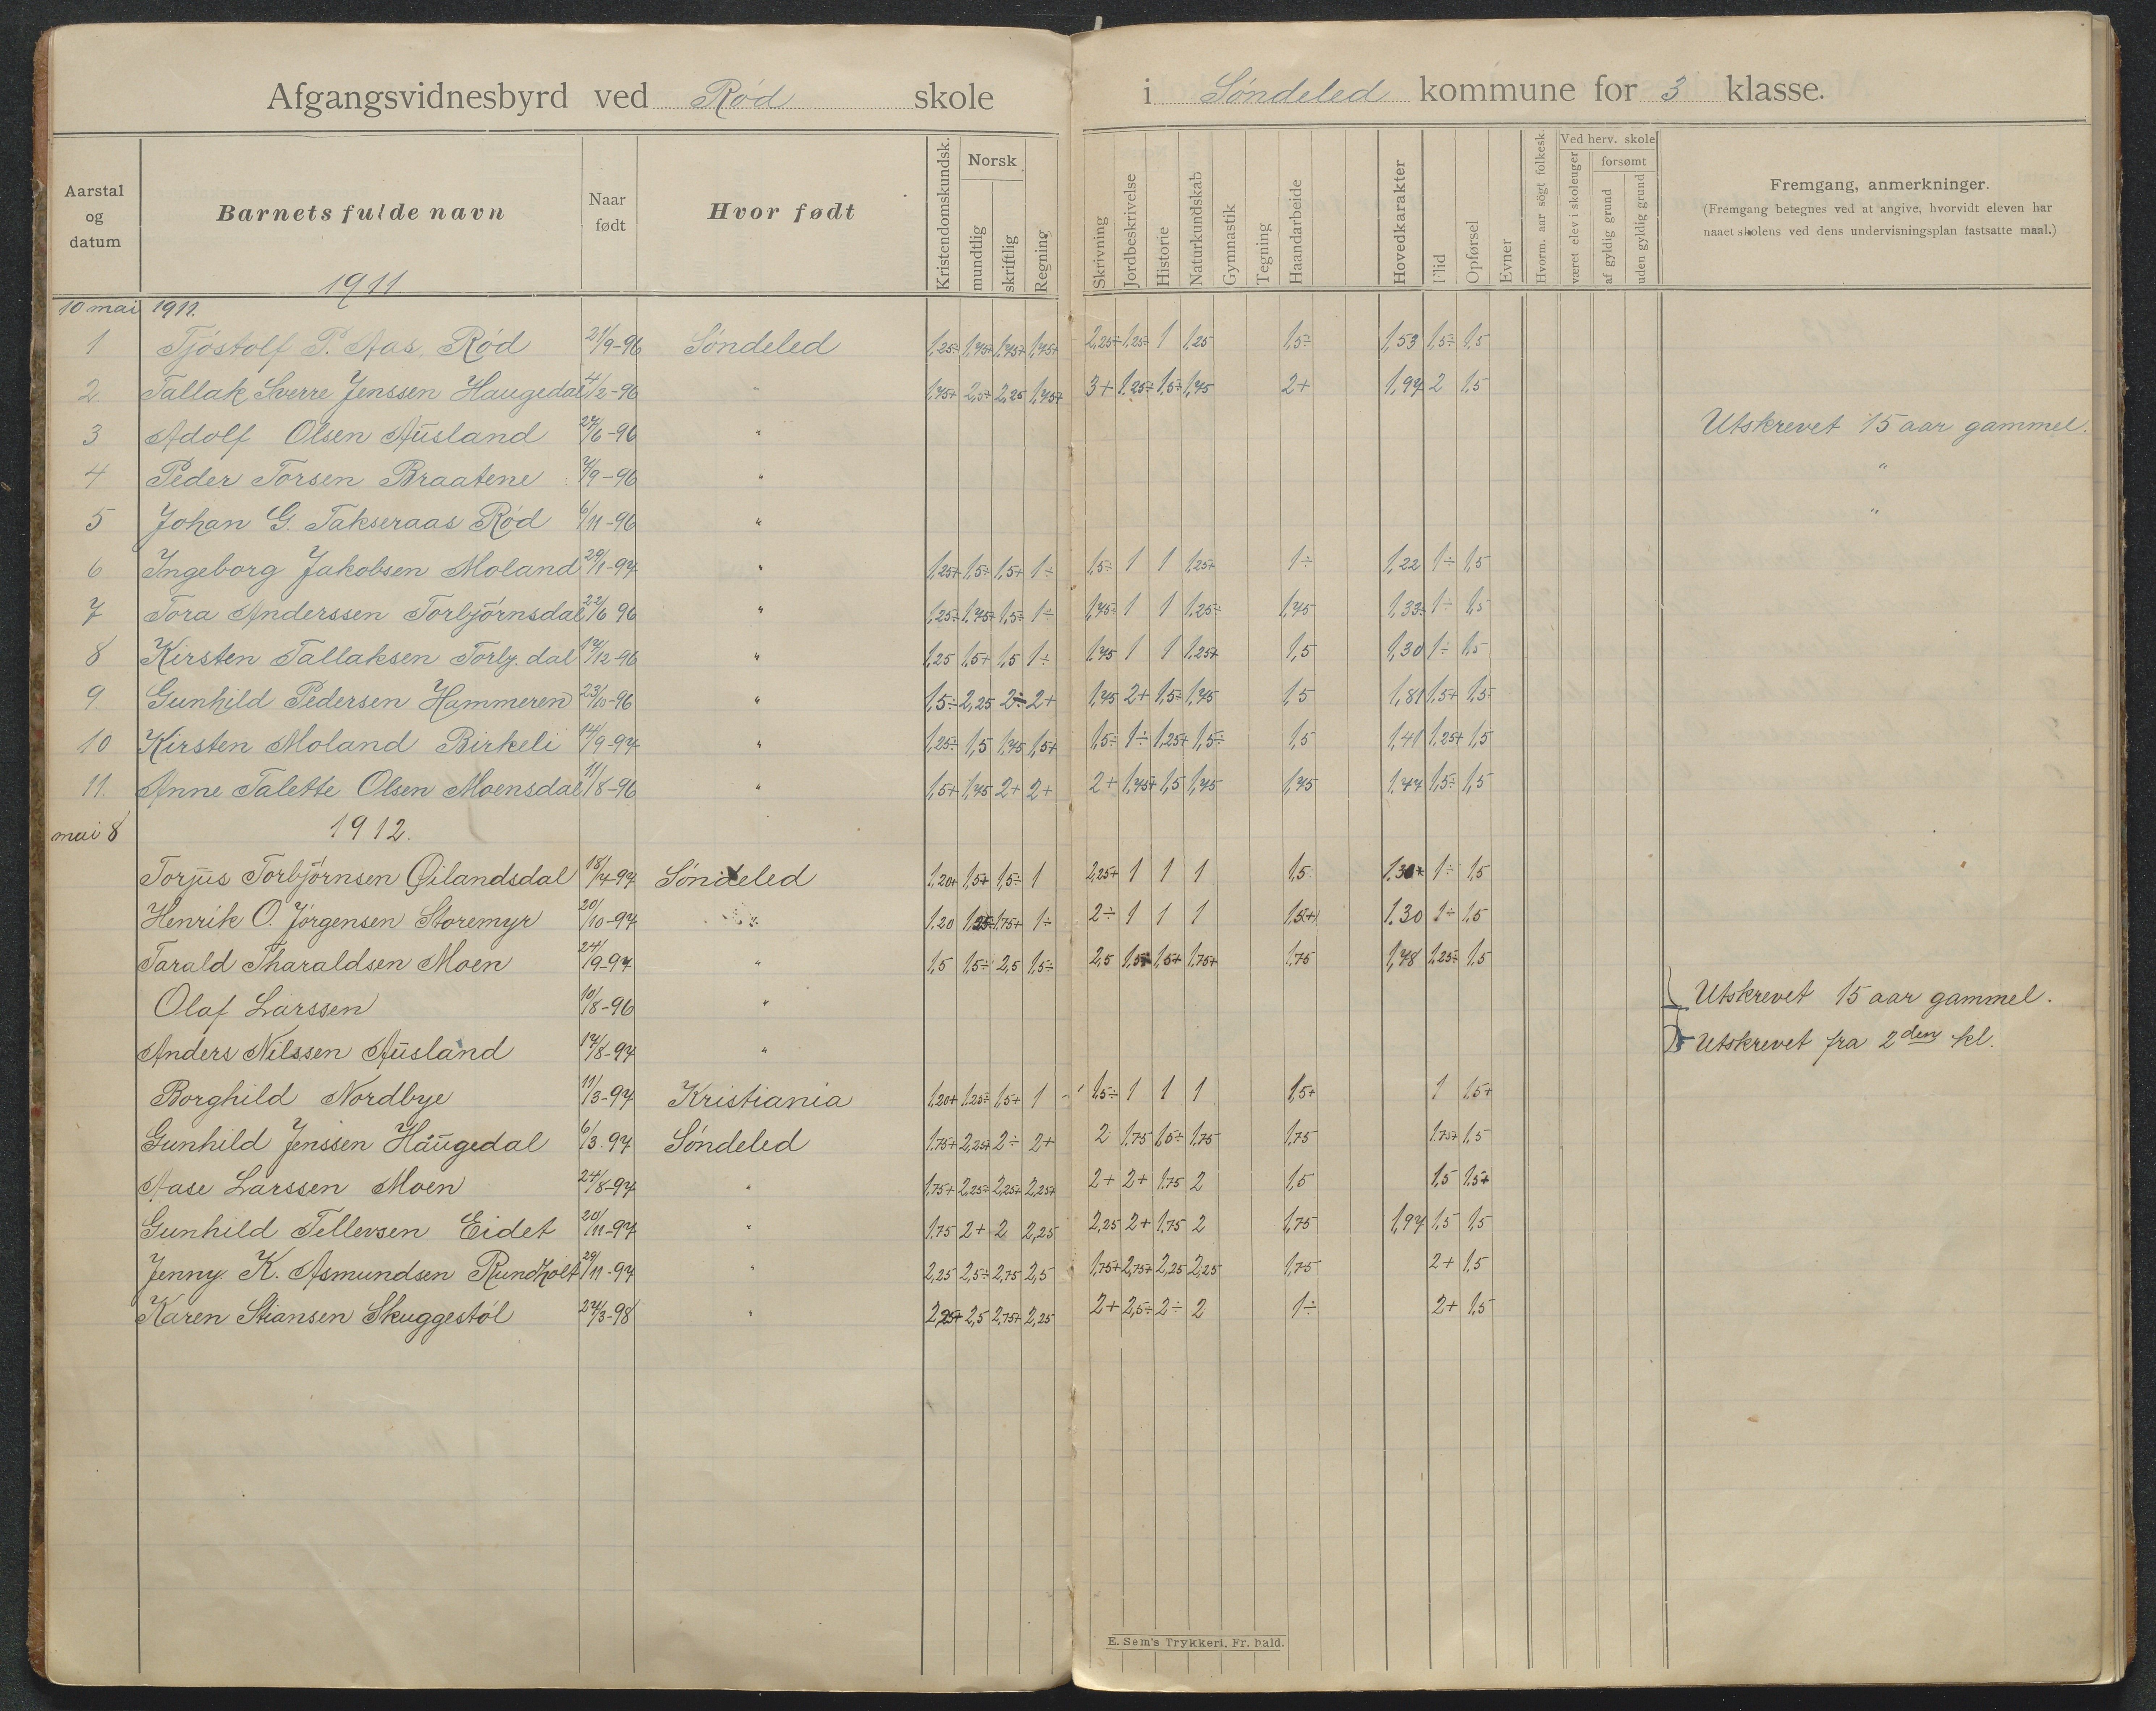 Afgangsvidnesbyrd ved Rød skole i Søndeled kommune for 3 klasse.
Aarstal og datum | Barnets fulde navn | Naar født | Hvor født | Kristendomskundsk. | Norsk mundtlig | skriftlig | Regning | Skrivning | Jordbeskrivelse | Historie | Naturkundskab | Gymnastik | Tegning | Haandarbeide | Hovedkarakter | Flid | Opførsel | Evner | Hvorm. aar søgt folkesk | Ved herv. skole | været elev i skoleuger | forsømt | af gyldig grund | uden gyldig grund | Fremgang, anmerkninger.
(Fremgang betegnes ved at angive, hvorvidt eleven har
naaet skolens ved dens undervisningsplan fastsatte maal.)
1911
10 mai 1911.
1 Tjøstolf P. Aas, Rød 21/9-96 Søndeled 1,25÷ 1,75+ 1,75+ 1,75+ 2,25÷ 1,25÷ 1 1,25 1,5÷ 1,53 1,5÷ 1,5
2. Tallak Sverre Jenssen Haugedal 4/2-96 " 1,75+ 2,5÷ 2,25 1,75+ 3+ 1,25÷ 1,5+ 1,75 2+ 1,97 2 1,5
3 Adolf Olsen Ausland 27/6-96 " Utskrevet 15 aar gammel.
4 Peder Torsen Braatene 7/9-96 " "
5 Johan G. Takseraas Rød 6/11-96 " "
6 Ingeborg Jakobsen Moland 29/1-97 " 1,25+ 1,5÷ 1,5+ 1÷ 1,5÷ 1 1 1,25+ 1÷ 1,22 1÷ 1,5
7 Tora Anderssen Torbjørnsdal 22/6 96 " 1,25÷ 1,75+ 1,5÷ 1÷ 1,75÷ 1 1 1,25÷ 1,75 1,33 1÷ 1,5
8 Kirsten Tallaksen Torbj. dal 17/12-96 " 1,25 1,5+ 1,5 1÷ 1,75 1 1 1,25+ 1,5 1,30 1÷ 1,5
9. Gunhild Pedersen Hammeren 23/10-96 " 1,5÷ 2,25 2÷ 2+ 1,75 2+ 1,5÷ 1,75 1,5 1,81 1,5+ 1,5
10 Kirsten Moland Birkeli 14/9-97 " 1,25÷ 1,5 1,75 1,5+ 1,5÷ 1÷ 1,25+ 1,5÷ 1,5 1,41 1,25+ 1,5
11. Anne Talette Olsen Moensdal 11/8-96 " 1,5+ 1,75 2+ 2+ 2+ 1,75+ 1,5 1,75 1,75 1,77 1,5÷ 1,5
mai 8 1912.
Torjus Torbjørnsen Øilandsdal 18/4-97 Søndeled 1,20+ 1,5+ 1,5÷ 1 2,25+ 1 1 1 1,5 1÷ 1,5
Henrik O. Jørgensen Storemyr 20/10-97 " 1.20 1,25÷ 1.75+ 1÷ 2÷ 1 1 1 1,5+ 1.30 1÷ 1,5
Tarald Tharaldsen Moen 24/9-97 " 1,5 1,5÷ 2,5 1,5÷ 2,5 1,5+ 1,5+ 1,75+ 1,75 1,78 1,25÷ 1,5
Olaf Larssen 10/8-96 " Utskrevet 15 aar gammel.
Anders Nilssen Ausland 17/8-97 " Utskrevet fra 2den kl.
Borghild Nordbye 11/3-97 Kristiania 1,20+ 1,25÷ 1,5+ 1 1,5÷ 1 1 1 1,5+ 1 1,5+
Gunhild Jenssen Haugedal 6/3.97 Søndeled 1.75+ 2,25+ 2÷ 2+ 2 1,75 1,5÷ 1,75 1,75 1,75+ 1,5
Aase Larssen Moen 24/8-97 " 1,75+ 2,25÷ 2,25+ 2,25+ 2+ 2+ 1.75 2 1,5 1,5 1.5+
Gunhild Tellevsen Eidet 20/11-97 " 1.75 2+ 2 2,25 2,25 2+ 1.75 2 1,75 1,97 1,5 1,5
Jenny K. Asmundsen Rundholt 29/11-97 " 2,25 2,5÷ 2,75 2,5 1,75+ 2,75+ 2,25 2,25 1,75 2+ 1,5
Karen Stiansen Skuggestøl 27/3-98 " 2,25+ 2,5 2,75+ 2,25 2+ 2,5÷ 2÷ 2 1÷ 2+ 1,5
E. Sem's Trykkeri, Fr. hald.